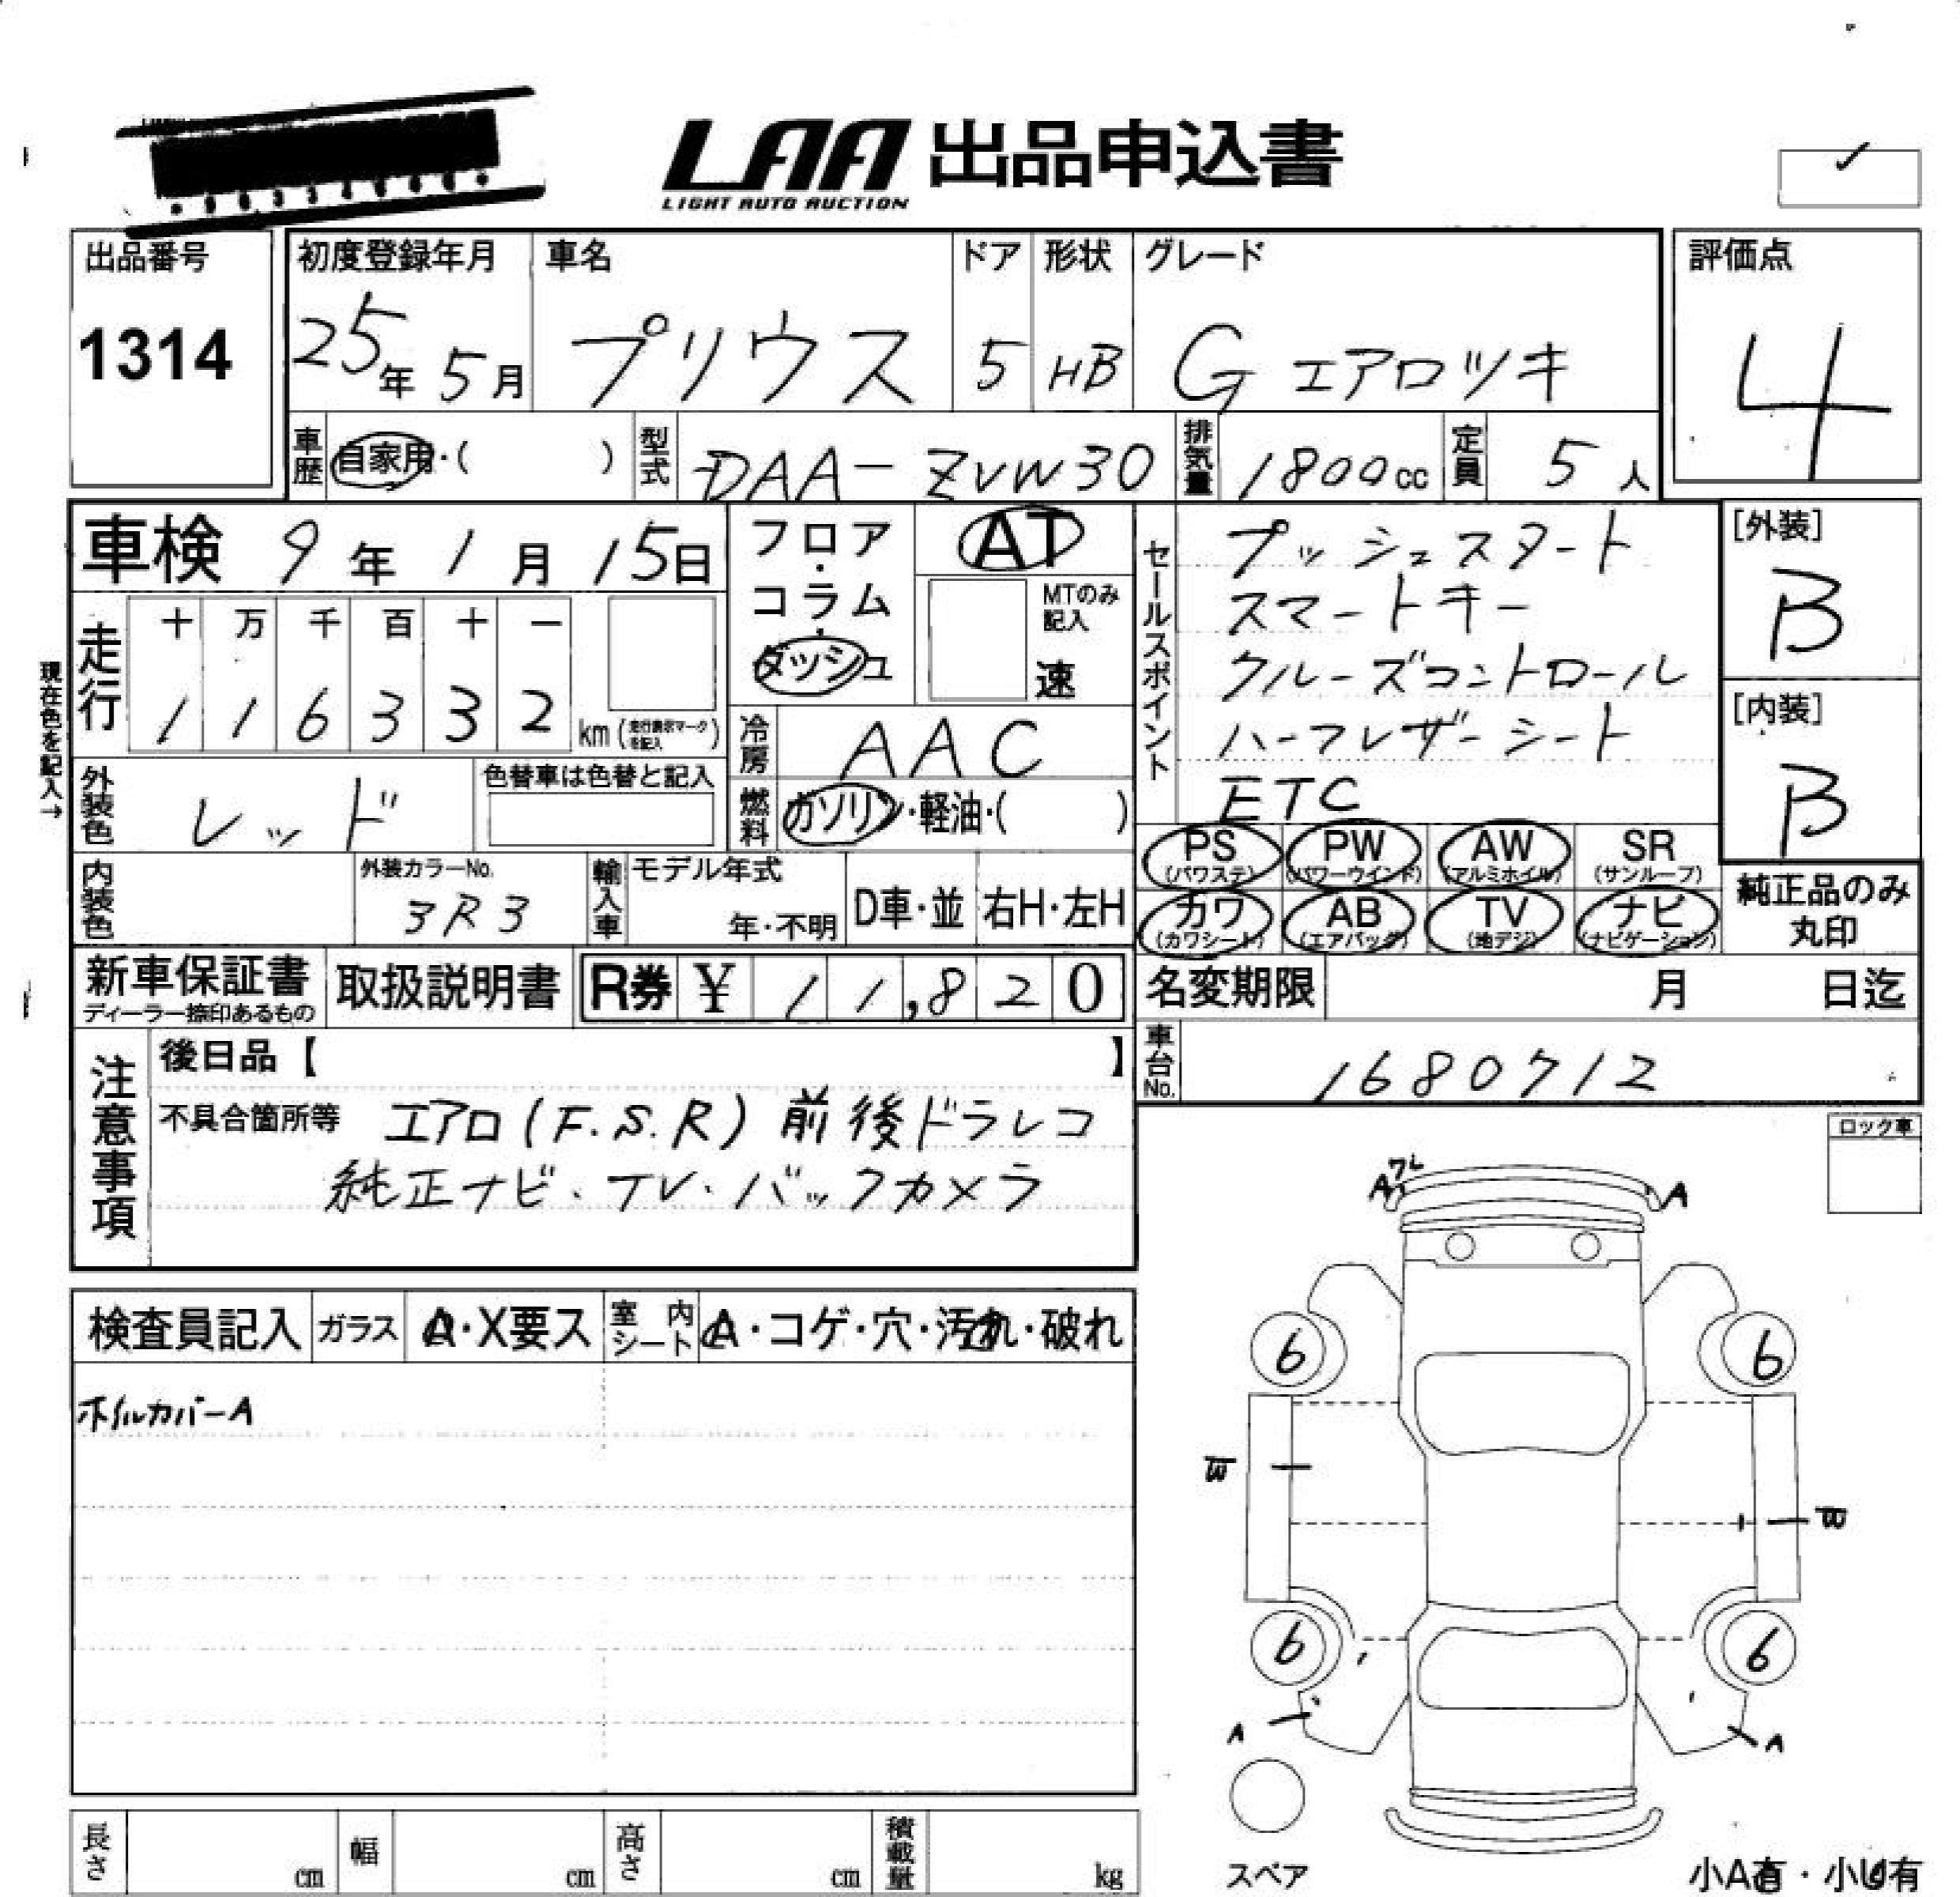 LAA 出品申込書
LIGHT AUTO AUCTION
出品番号
1314
初度登録年月
25年 5月
車名
プリウス
ドア
5
形状
HB
グレード
G エアロツキ
評価点
4
車歴 自家用・( )
型式 DAA-ZVW30
排気量 1800cc
定員 5人
車検 9年 1月 15日
フロア・コラム・ダッシュ
AT
MTのみ記入
速
セールスポイント
プッシュスタート
スマートキー
クルーズコントロール
ハーフレザーシート
ETC
[外装]
B
[内装]
B
現在色を記入→
走行
十 万 千 百 十 一
1 1 6 3 3 2 km (走行表示マークを記入)
冷房 AAC
外装色 レッド
色替車は色替と記入
燃料 ガソリン・軽油・( )
PS (パワステ) PW (パワーウインド) AW (アルミホイル) SR (サンルーフ)
カワ (カワシート) AB (エアバッグ) TV (地デジ) ナビ (ナビゲーション)
純正品のみ
丸印
内装色
外装カラーNo.
3R3
輸入車
モデル年式
年・不明
D車・並
右H・左H
新車保証書
ディーラー捺印あるもの
取扱説明書
R券 ¥ 11,820
名変期限 月 日迄
車台No. 1680712
注意事項
後日品【 】
不具合箇所等 エアロ(F.S.R) 前後ドラレコ
純正ナビ・TV・バックカメラ
ロック車
Aワレ A
検査員記入 ガラス A・X要ス 室内シート A・コゲ・穴・汚れ・破れ
ホイルカバーA
6 6
W
W
6 6
A A
スペア
小A有・小U有
長さ cm 幅 cm 高さ cm 積載量 kg